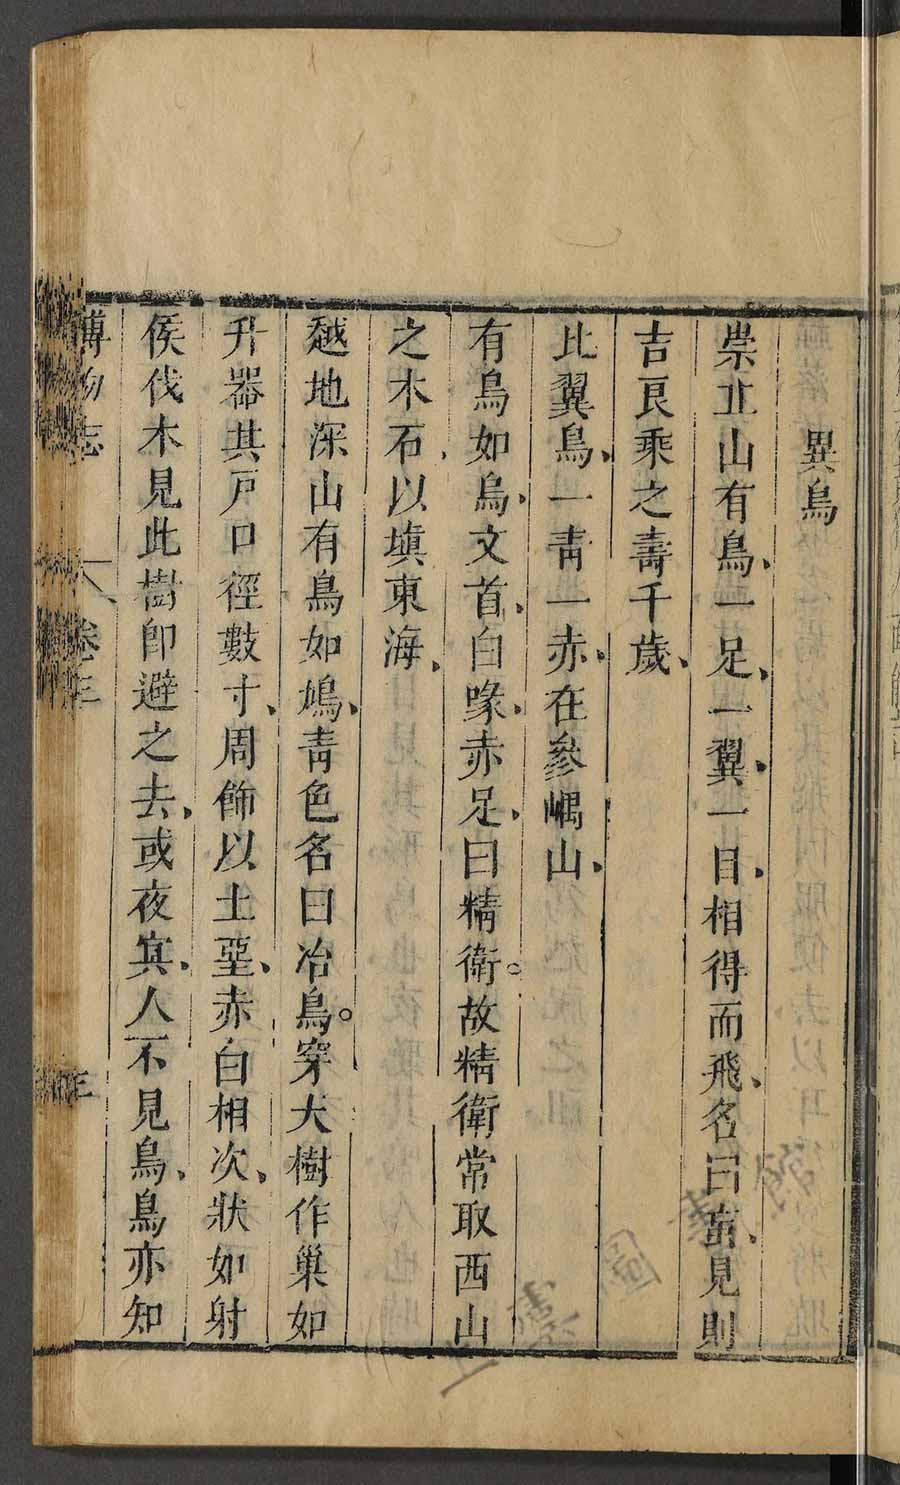 異鳥
崇丘山有鳥、一足、一翼、一目、相得而飛、名曰䖟、見則
吉良乘之壽千歲、
比翼鳥、一青一赤、在參嵎山、
有鳥如烏、文首、白喙、赤足、曰精衛。故精衛常取西山
之木石、以塡東海、
越地深山有鳥如鳩、青色名曰冶鳥。穿大樹作巢如
升器其戸口徑數寸、周飾以土堊、赤白相次、狀如射
侯伐木見此樹卽避之去、或夜㝠、人不見鳥、鳥亦知
博物志 卷三 三